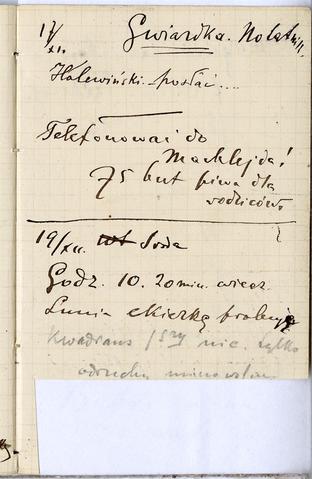 17/XII. Gwiazdka. Notatnik.
Halewiński posłać....
Telefonować do
Macklejda!
75 but piwa dla
rodziców
19/XII. Środa
Godz. 10. 20 min. wiecz.
Lunia skierką próbuję
Kwadrans nie. tylko
odruchy